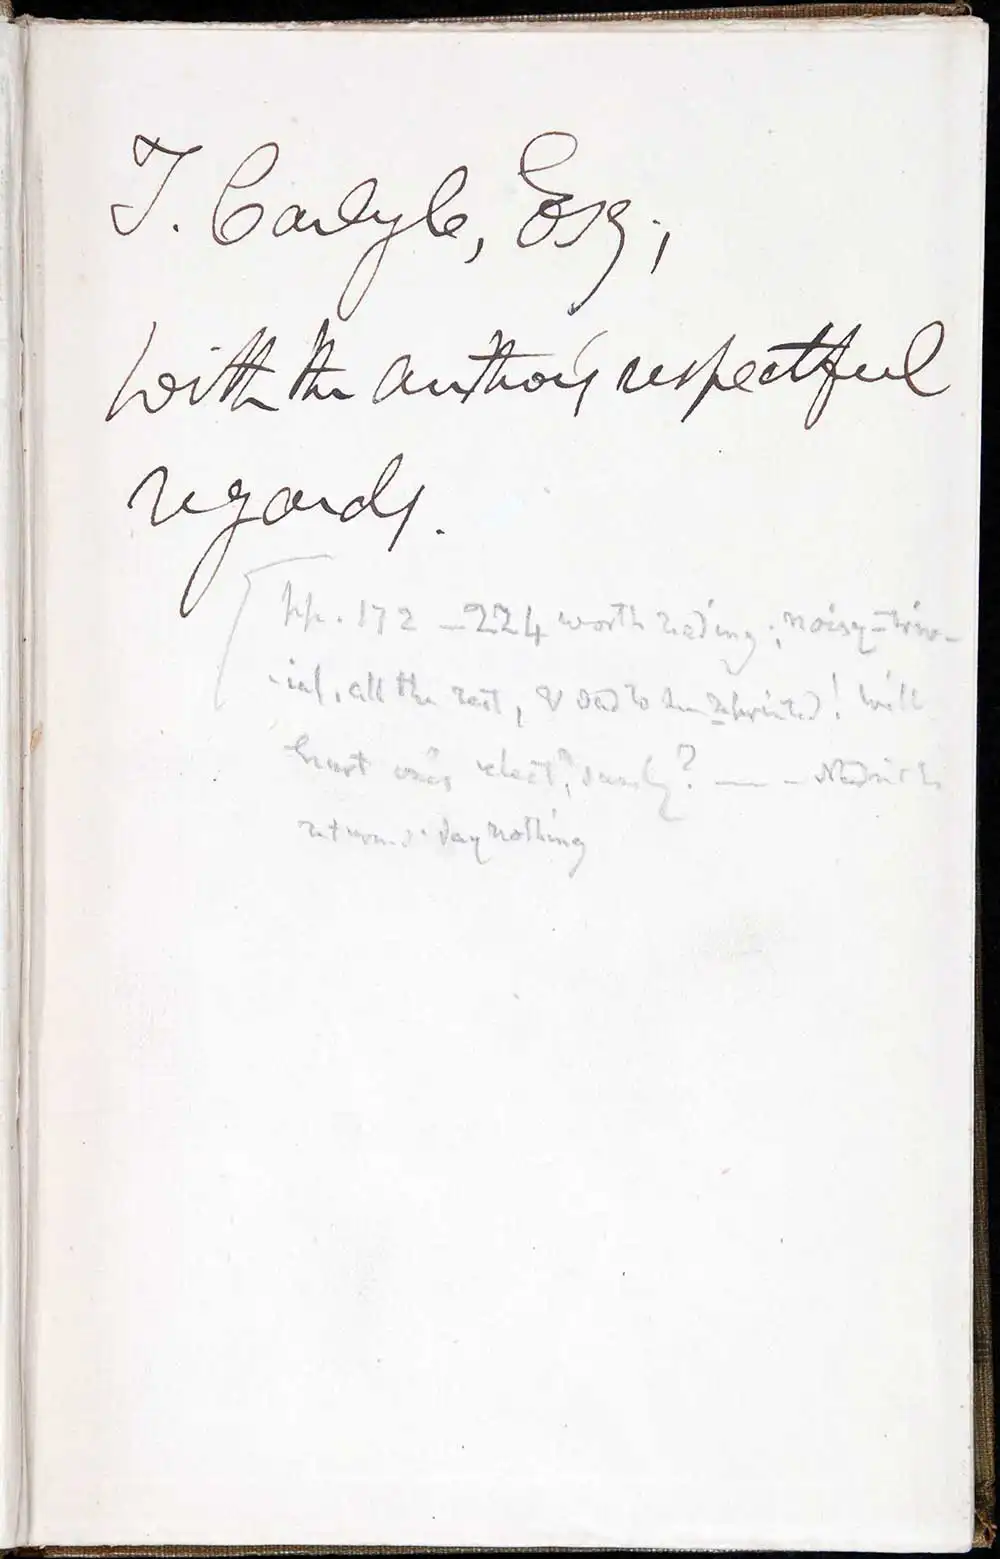 T. Carlyle, Esq.,
with the author's respectful
regards.
pp. 172–224 worth reading; noisy-triv-
-ial, all the rest, & sad to see reprinted! Will
hurt surely? —
say nothing